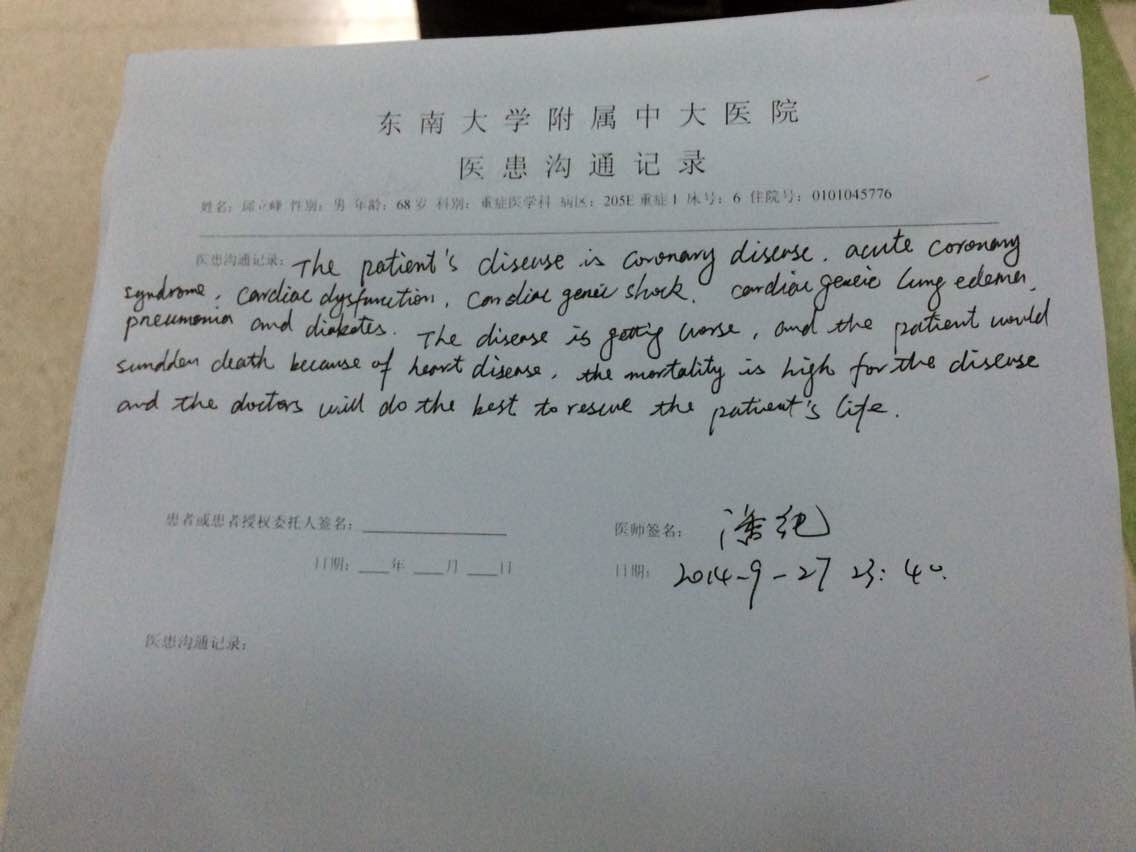 东南大学附属中大医院
医患沟通记录
姓名：邱立峰 性别：男 年龄：68岁 科别：重症医学科 病区：205E重症1 床号：6 住院号：0101045776
医患沟通记录： The patient's disease is coronary disease, acute coronary
syndrome, cardiac dysfunction, cardiac geneic shock, cardiac geneic lung edema,
pneumonia and diabetes. The disease is getting worse, and the patient would
sundden death because of heart disease, the mortality is high for the disease
and the doctors will do the best to rescue the patient's life.
患者或患者授权委托人签名：
医师签名：
日期：___年 ___月 ___日
日期： 2014-9-27 23:40.
医患沟通记录：